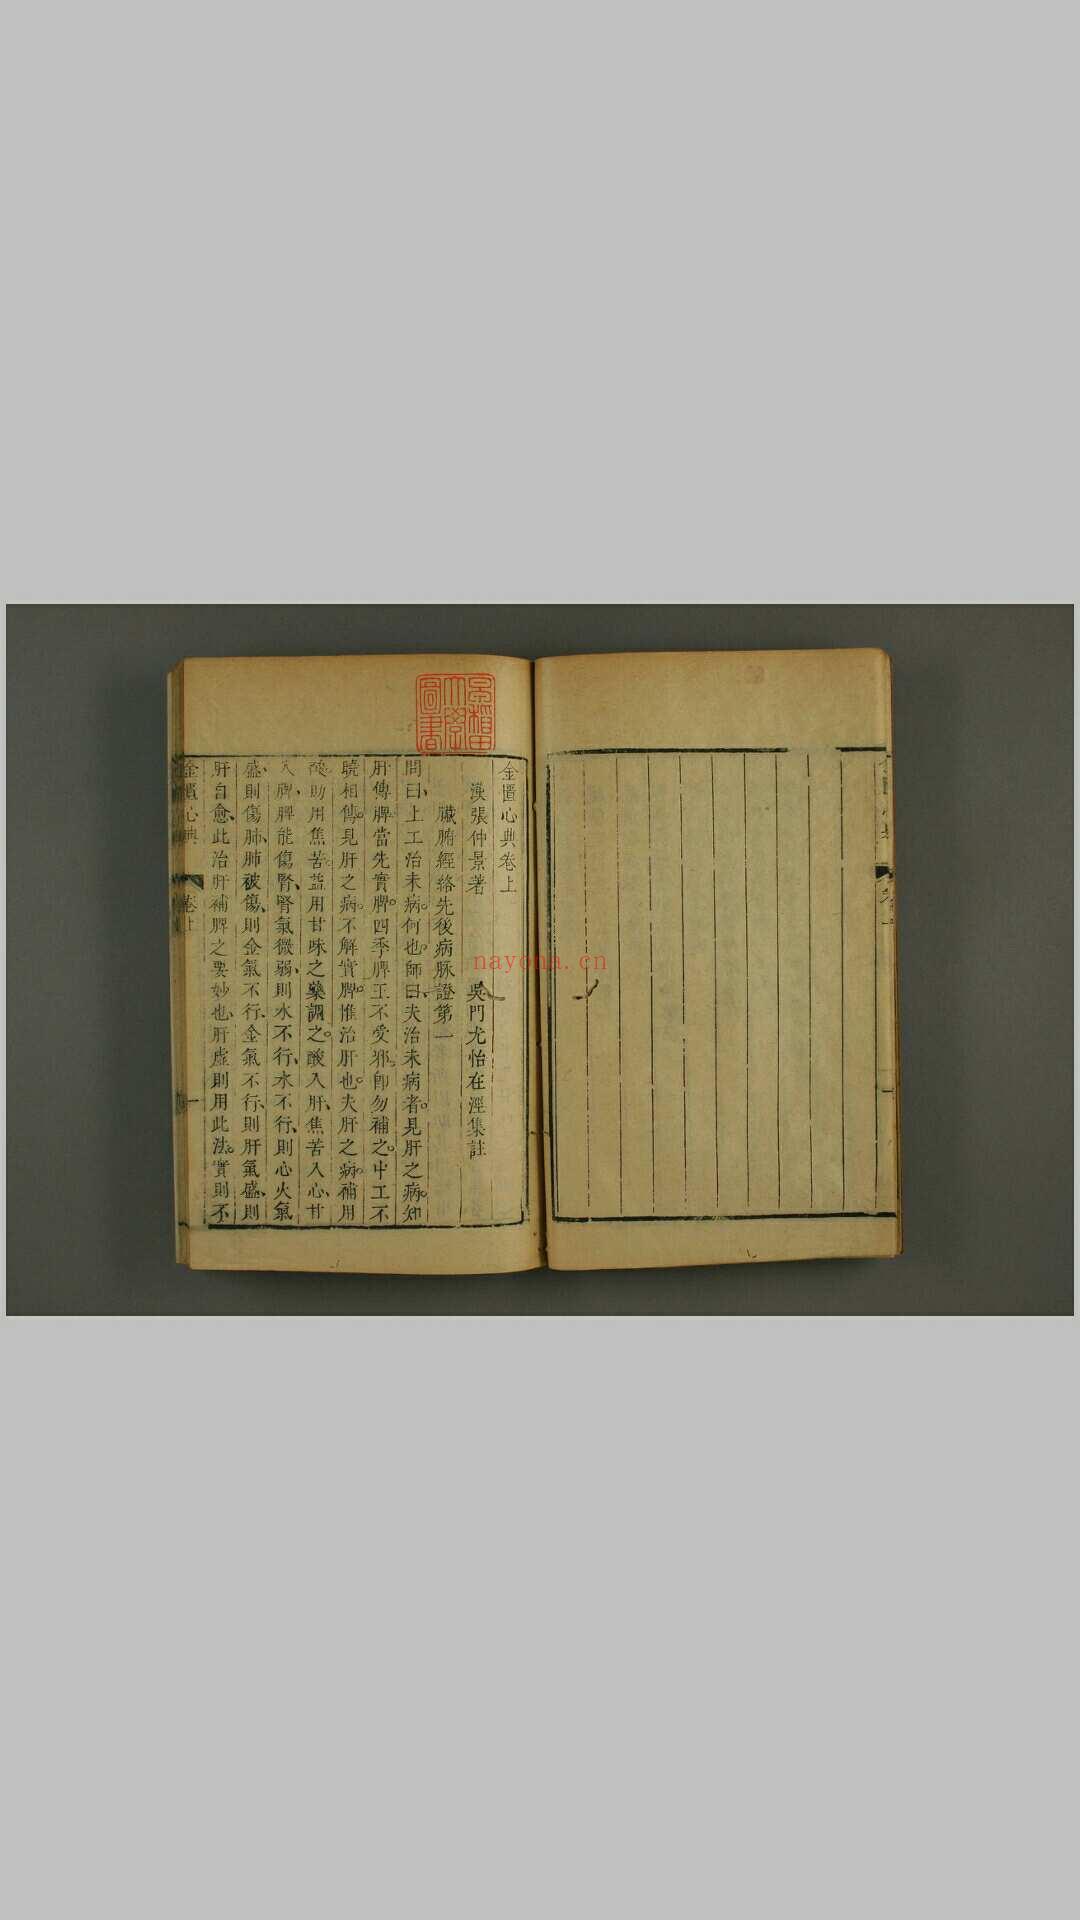 金匱心典卷上
漢張仲景著 吳門尤怡在涇集註
臟腑經絡先後病脉證第一
問曰上工治未病何也師曰夫治未病者見肝之病知
肝傳脾當先實脾四季脾王不受邪卽勿補之中工不
曉相傳見肝之病不解實脾惟治肝也夫肝之病補用
酸助用焦苦益用甘味之藥調之酸入肝焦苦入心甘
入脾脾能傷腎腎氣微弱則水不行水不行則心火氣
盛則傷肺肺被傷則金氣不行金氣不行則肝氣盛則
肝自愈此治肝補脾之要妙也肝虛則用此法實則不
金匱心典 卷上 一
早稻田大學圖書
nayona.cn